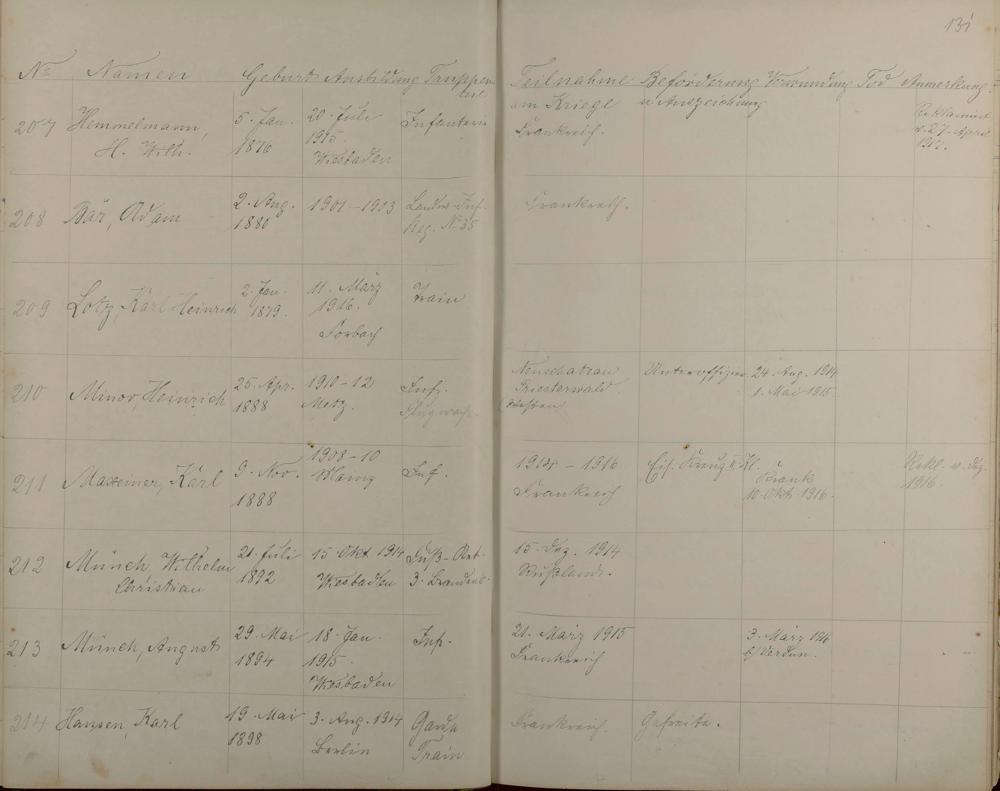 131
No Namen Geburt Ausbildung Truppen Teilnahme Beförderung Verwundung Tod Anmerkung
teil am Kriege u. Auszeichnung
207 Hemmelmann, 5. Jan. 20. Juli Infanterie Frankreich. Reklamiert
H. Wilh. 1876 1915. v. 27. April
Wiesbaden 1917.
208 Bär, Adam 2. Aug. 1901-1903 Landw. Inf. Frankreich.
1880 Reg. No 35
209 Lotz, Karl Heinrich 2. Jan. 11. März Train
1879. 1916.
Forbach
210 Minor, Heinrich 25. Apr. 1910-12 Inf. Neuschateau Unteroffizier 24. Aug. 1914
1888 Metz. Priesterwald 1. Mai 1915.
(Westen)
211 Maxeiner, Karl 9. Nov. 1908-10 Inf. 1914-1916 Eis. Kreuz II. Kl. Krank Rekl. v. Dez.
1888 Mainz Frankreich 10. Okt. 1916. 1916.
212 Münch Wilhelm 21. Juli 15. Okt. 1914 Fuß-Art. 15. Dez. 1914
Christian 1892 Wiesbaden 3. Brandenb. Rußland.
213 Münch, August 29. Mai 18. Jan. Inf. 21. März 1915 3. März 1916
1894 1915. Frankreich b/ Verdun.
Wiesbaden
214 Hansen, Karl 19. Mai 3. Aug. 1914 Garde Frankreich. Gefreite.
1898 Berlin Train